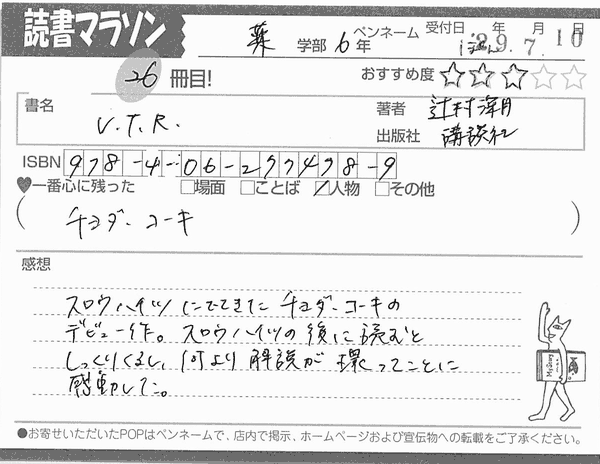 読書マラソン
薬 学部 6年 ペンネーム 受付日 年 月 日
29. 7. 10
26 冊目! おすすめ度 ★★★☆☆
書名 V.T.R. 著者 辻村深月
出版社 講談社
ISBN 978-4-06-277478-9
♥一番心に残った □場面 □ことば ☑人物 □その他
(チヨダ・コーキ)
感想
スロウハイツにでてきたチヨダ・コーキの
デビュー作。スロウハイツの後に読むと
しっくりくるし、何より解説が環ってことに
感動した。
●お寄せいただいたPOPはペンネームで、店内で掲示、ホームページおよび宣伝物への転載をご了承ください。